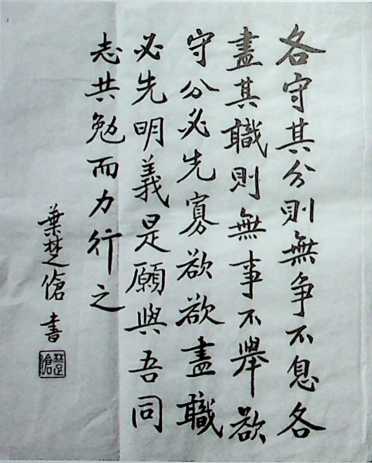 各守其分則無爭不息各
盡其職則無事不舉欲
守分必先寡欲欲盡職
必先明義是願與吾同
志共勉而力行之
葉楚傖書
楚傖